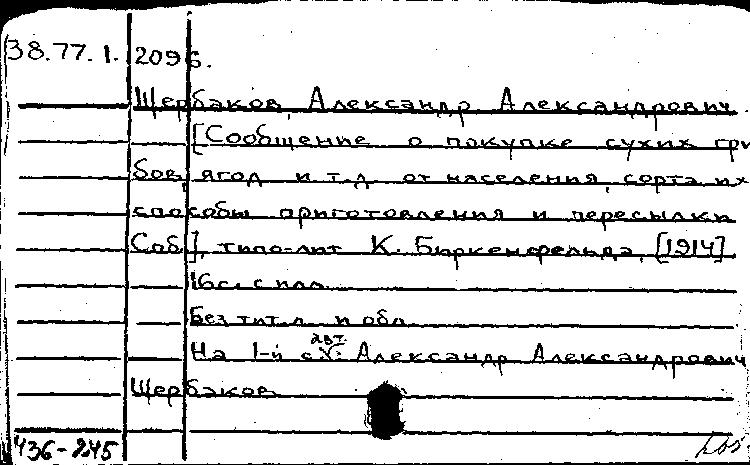 38.77.1. 2096.
Щербаков, Александр Александрович
[Сообщение о покупке сухих гри
бов, ягод и т.д. от населения, сорта их
способы приготовления и пересылки
Спб], типо-лит К. Биркенфельда, [1914]
16 с. с илл.
Без тит. л. и обл.
На 1-й с. авт.: Александр Александрович
Щербаков
436-245